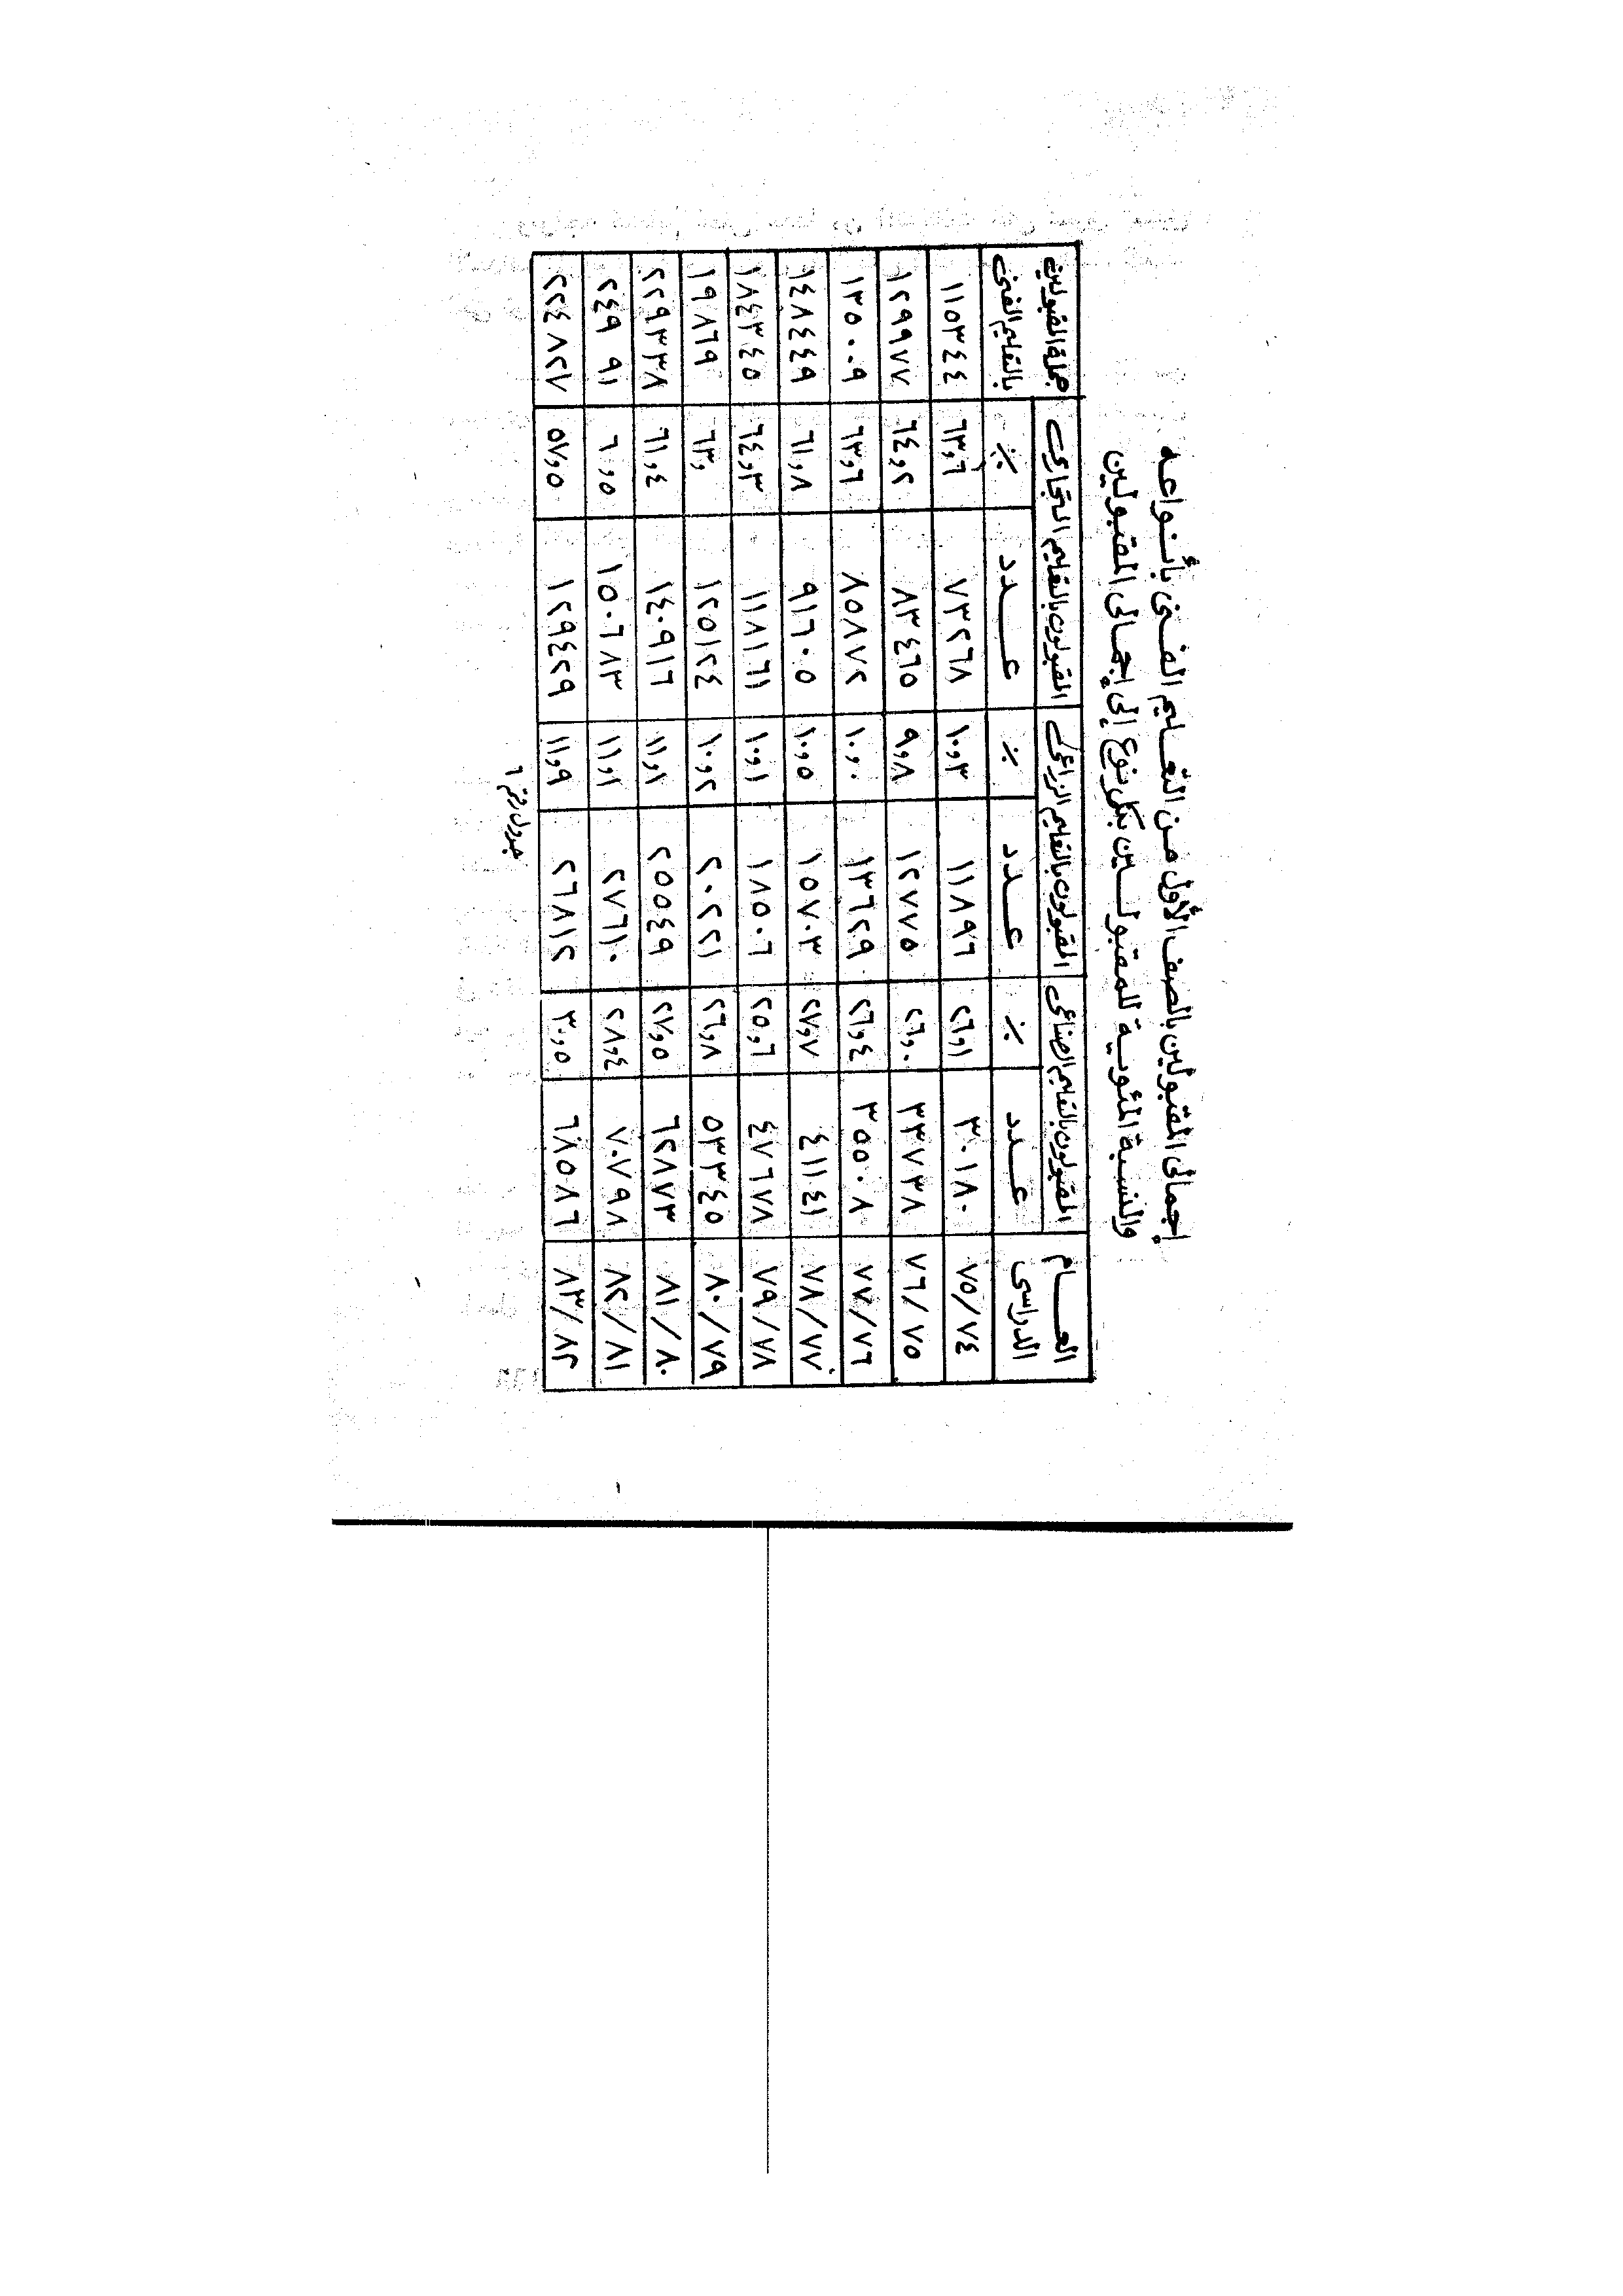 إجمالى المقبولين بالصف الأول من التعليم الفنى بأنواعه
والنسبة المئوية للمقبولين بكل نوع إلى إجمالى المقبولين
العام الدراسى | المقبولون بالتعليم الصناعى | المقبولون بالتعليم الزراعى | المقبولون بالتعليم التجارى | جملة المقبولين بالتعليم الفنى
عدد | ٪ | عدد | ٪ | عدد | ٪
٧٥/٧٤ | ٣٠١٨٠ | ٢٦,١ | ١١٨٩٦ | ١٠,٣ | ٧٣٢٦٨ | ٦٣,٦ | ١١٥٣٤٤
٧٦/٧٥ | ٣٣٧٣٨ | ٢٦,٠ | ١٢٧٧٥ | ٩,٨ | ٨٣٤٦٥ | ٦٤,٢ | ١٢٩٩٧٧
٧٧/٧٦ | ٣٥٥٠٨ | ٢٦,٤ | ١٣٦٢٩ | ١٠,٠ | ٨٥٨٧٢ | ٦٣,٦ | ١٣٥٠٠٩
٧٨/٧٧ | ٤١١٤١ | ٢٧,٧ | ١٥٧٠٣ | ١٠,٥ | ٩١٦٠٥ | ٦١,٨ | ١٤٨٤٤٩
٧٩/٧٨ | ٤٧٦٧٨ | ٢٥,٦ | ١٨٥٠٦ | ١٠,١ | ١١٨١٦١ | ٦٤,٣ | ١٨٤٣٤٥
٨٠/٧٩ | ٥٣٣٤٥ | ٢٦,٨ | ٢٠٢٢١ | ١٠,٢ | ١٢٥١٢٤ | ٦٣,٠ | ١٩٨٦٩
٨١/٨٠ | ٦٢٨٧٣ | ٢٧,٥ | ٢٥٥٤٩ | ١١,١ | ١٤٠٩١٦ | ٦١,٤ | ٢٢٩٣٣٨
٨٢/٨١ | ٧٠٧٩٨ | ٢٨,٤ | ٢٧٦١٠ | ١١,١ | ١٥٠٦٨٣ | ٦٠,٥ | ٢٤٩٠٩١
٨٣/٨٢ | ٦٨٥٨٦ | ٣٠,٥ | ٢٦٨١٢ | ١١,٩ | ١٢٩٤٢٩ | ٥٧,٥ | ٢٢٤٨٢٧
جدول رقم ٦